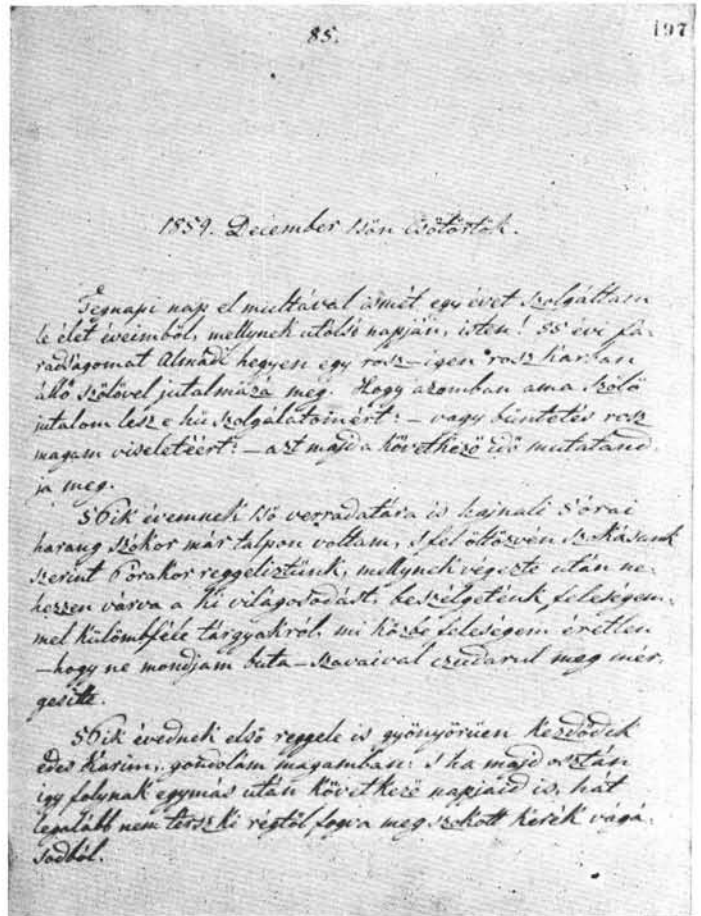 85.
197
1859. December 1sőn Csötörtök.
Tegnapi nap el multával ismét egy évet szolgáltam
le élet éveimből, mellynek utólsó napján, isten! 55 évi fá-
radságomat Almádi hegyen egy rosz – igen rosz karban
álló szőlővel jutalmázá meg. Hogy azomban ama szőlő
jutalom lesz e hű szolgálatoimért: – vagy büntetés rosz
magam viseletéért: – azt majd a következő idő mutatand-
ja meg.
56ik évemnek 1ső verradatára is hajnali 5 órai
harang szókor már talpon voltam, s fel öltözvén szokásunk
szerint 6 órakor reggeliztünk, mellynek végezte után ne-
hezzen várva a ki világosodást, beszélgeténk feleségem-
mel külömbféle tárgyakról, mi közbe feleségem éretlen
– hogy ne mondjam buta – szavaival czudarul meg mér-
gesite.
56ik évednek első reggele is gyönyörüen kezdődik
édes Karim, gondolám magamban: s ha majd osztán
így folynak egymás után következő napjaid is, hát
legalább nem térsz ki régtől fogva meg szokott kerék vágá-
sodból.